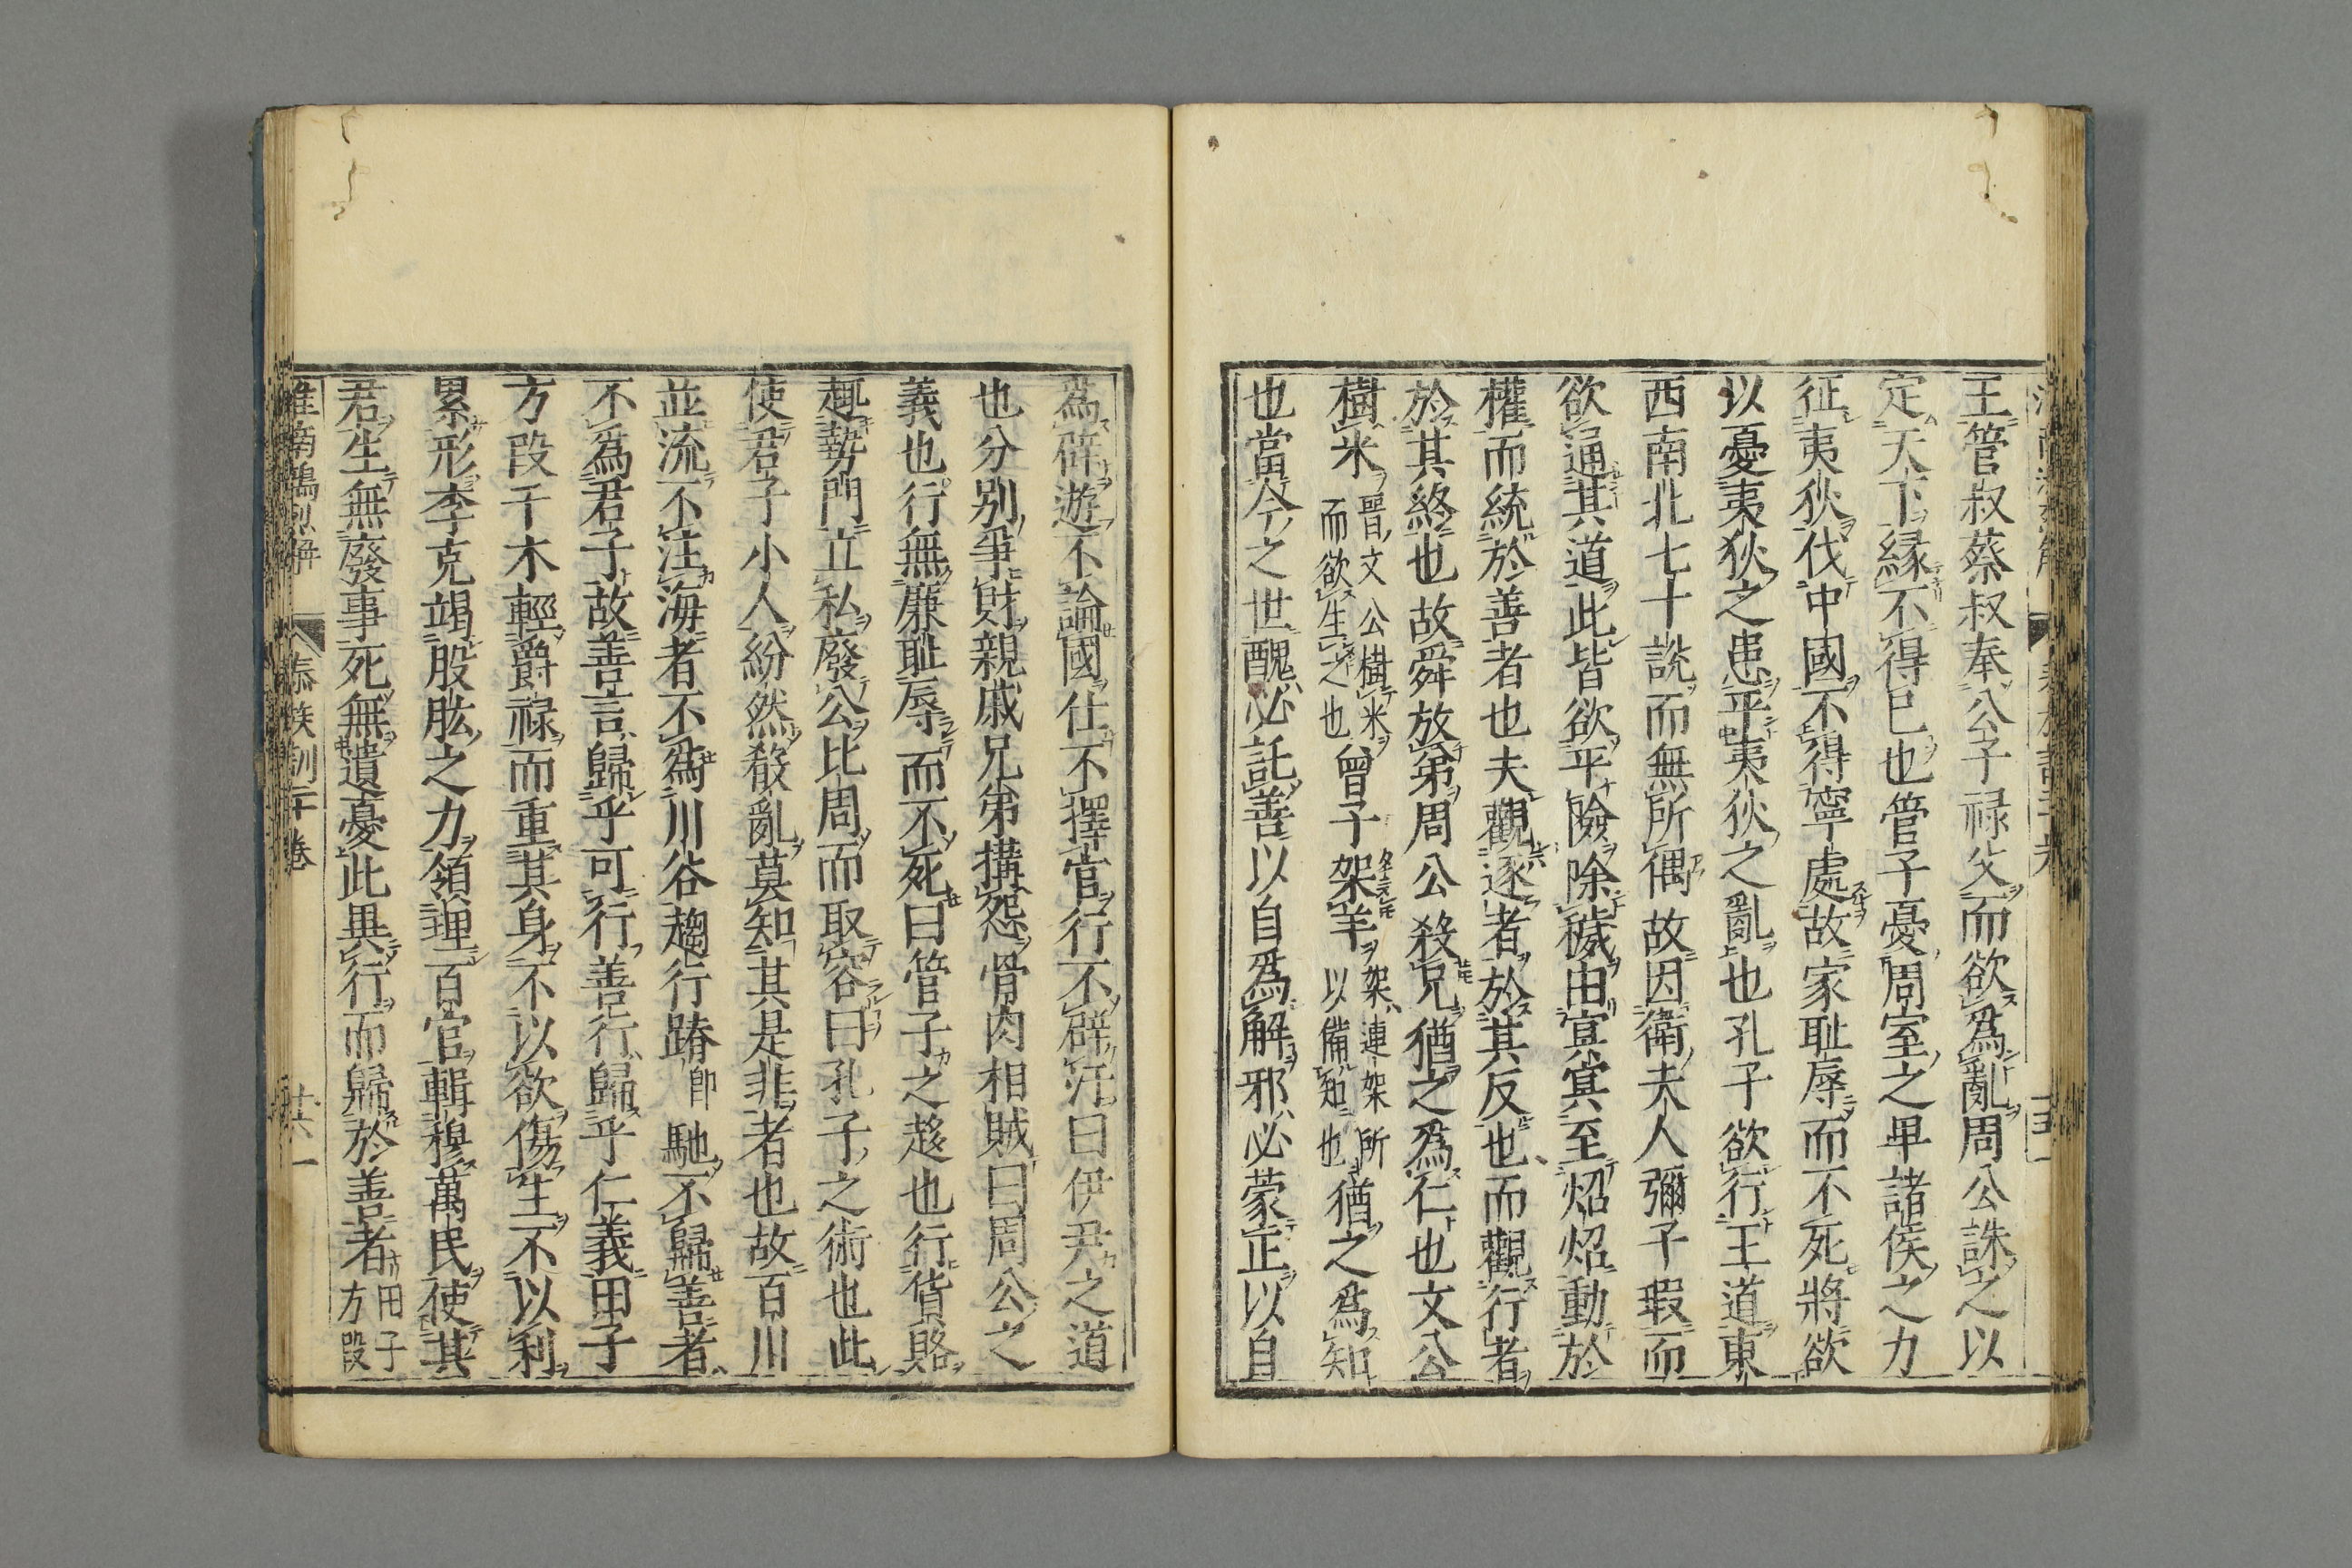 王管叔蔡叔奉公子祿父而欲爲亂周公誅之以
定天下縁不得已也管子憂周室之卑諸侯之力
征夷狄伐中國不得寧處故家耻辱而不死將欲
以憂夷狄之患平夷狄之亂也孔子欲行王道東
西南北七十說而無所偶故因衛夫人彌子瑕而
欲通其道此皆欲平險除穢由冥冥至炤炤動於
權而統於善者也夫觀逐者於其反也而觀行者
於其終也故舜放弟周公殺兄猶之爲仁也文公
樹米晋文公樹米而欲生之也曾子架羊架連架所以備知也猶之爲知
也當今之世醜必託善以自爲解邪必蒙正以自
爲辟遊不論國仕不擇官行不辟汙曰伊尹之道
也分别爭財親戚兄弟搆怨骨肉相賊曰周公之
義也行無廉耻辱而不死曰管子之趍也行貨賂
趣勢門立私廢公比周而取容曰孔子之術也此
使君子小人紛然殽亂莫知其是非者也故百川
並流不注海者不爲川谷趨行蹐即馳不歸善者
不爲君子故善言歸乎可行善行歸乎仁義田子
方段干木輕爵祿而重其身不以欲傷生不以利
累形李克竭股肱之力領理百官輯穆萬民使其
君生無廢事死無遺憂此異行而歸於善者田子方段
淮南鴻烈解 泰族訓二十卷 廿六